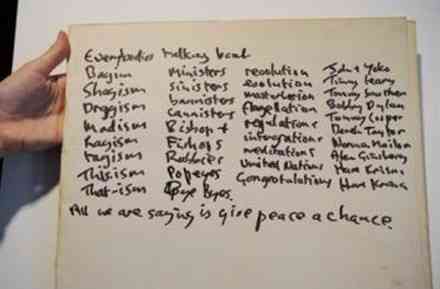 Everybodies talking bout
Bagism Ministers revolution John + Yoko
Shagism sinisters evolution Timmy Leary
Draggism bannisters masturbation Tommy Smothers
Madism cannisters flagellation Bobby Dylan
Ragism Bishop + regulations Tommy Cooper
Tagism Fishops integrations Derek Taylor
Thisism Rabbies meditations Norman Mailer
That-ism Popeyes United Nations Alan Ginsberg
Bye Byes. Congratulations Hare Krishna
Hare Krishna
All we are saying is give peace a chance.